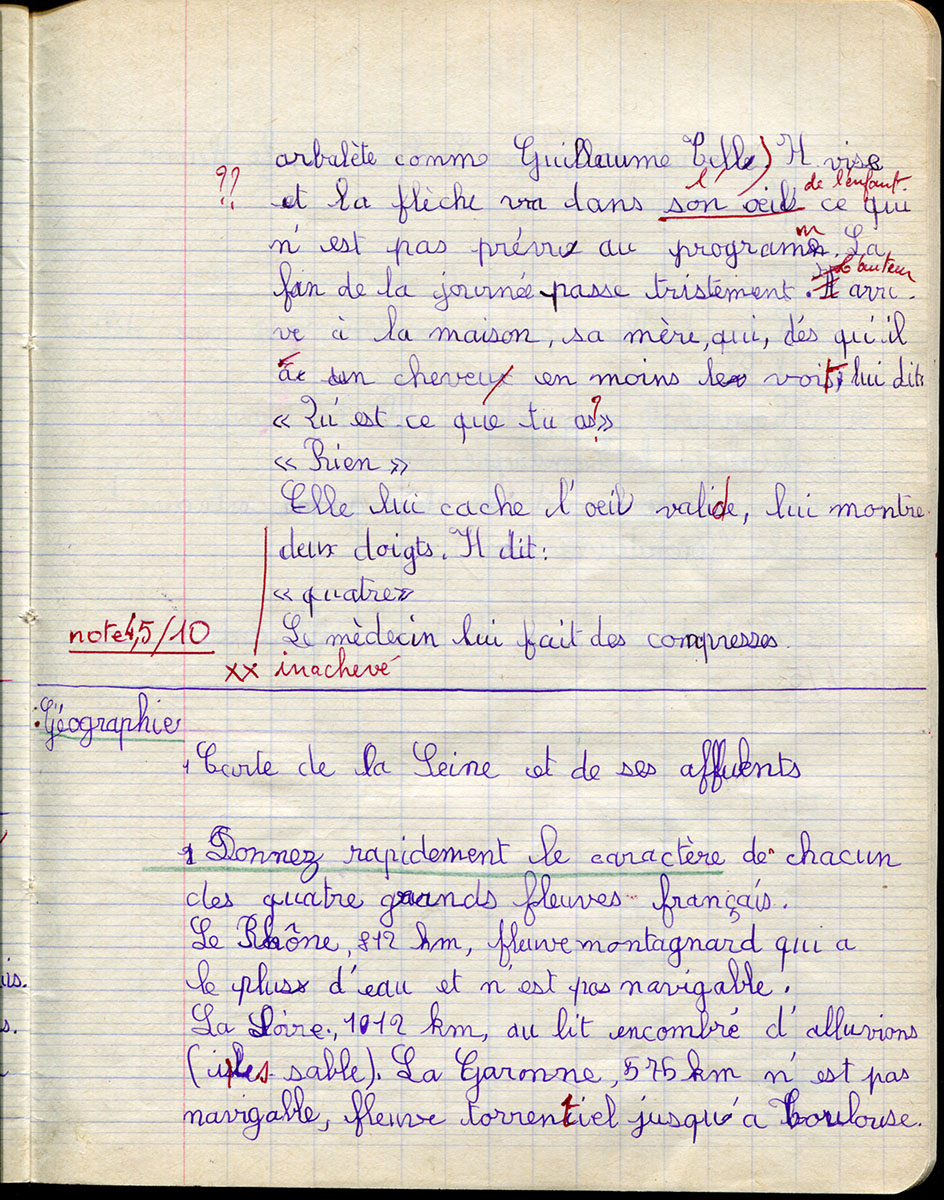 arbalète comme Guillaume Tell) Il vise
?? l de l'enfant.
et la flèche va dans son oeil ce qui
m
n'est pas prévu au programm. La
L'auteur
fin de la journée passe tristement. Il arri-
ve à la maison, sa mère, qui, dés qu'il
a un cheveu en moins le voit, lui dit:
« Qu'est ce que tu as?»
« Rien »
Elle lui cache l'oeil valide, lui montre
deux doigts. Il dit:
« quatre»
note 4,5/10 Le mèdecin lui fait des compresses.
xx inachevé
Géographie
1 Carte de la Seine et de ses affluents
1 Donnez rapidement le caractère de chacun
des quatre grands fleuves français.
Le Rhône, 812 km, fleuve montagnard qui a
le plus d'eau et n'est pas navigable.
La Loire, 1012 km, au lit encombré d'alluvions
(isles sable). La Garonne, 575 km n'est pas
navigable, fleuve torrentiel jusqu'a Toulouse.